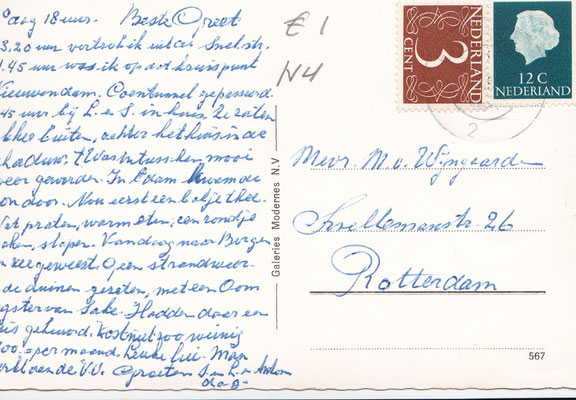 dag 18 uur. Beste Greet
3.20 uur vertrok ik uit de Snel.str.
1.45 uur was ik op dat kruispunt
Nieuwendam. Coentunnel gepasseerd.
45 uur bij L. e S. in huis. Ze zaten
lekker buiten, achter het huis in de
schaduw. 't Was intussen mooi
weer geworden. In A'dam kwam de
zon door. Nou eerst een balje thee.
Wat praten, warm eten; een rondje
slapen. Vandaag naar Bergen
zee geweest. Geen strandweer
de duinen gezeten, met een Oom
Hadden daar een
huis gehuurd. Kost nu zoo weinig
per maand. Leuke lui. Man
werkt aan de V.U. Groeten S. en L. en
dag
€ 1
N4
Galeries Modernes N.V
3 CENT NEDERLAND
12 C NEDERLAND
2
Mevr. M. v. Wijngaarden
Snellemanstr. 26
Rotterdam
567